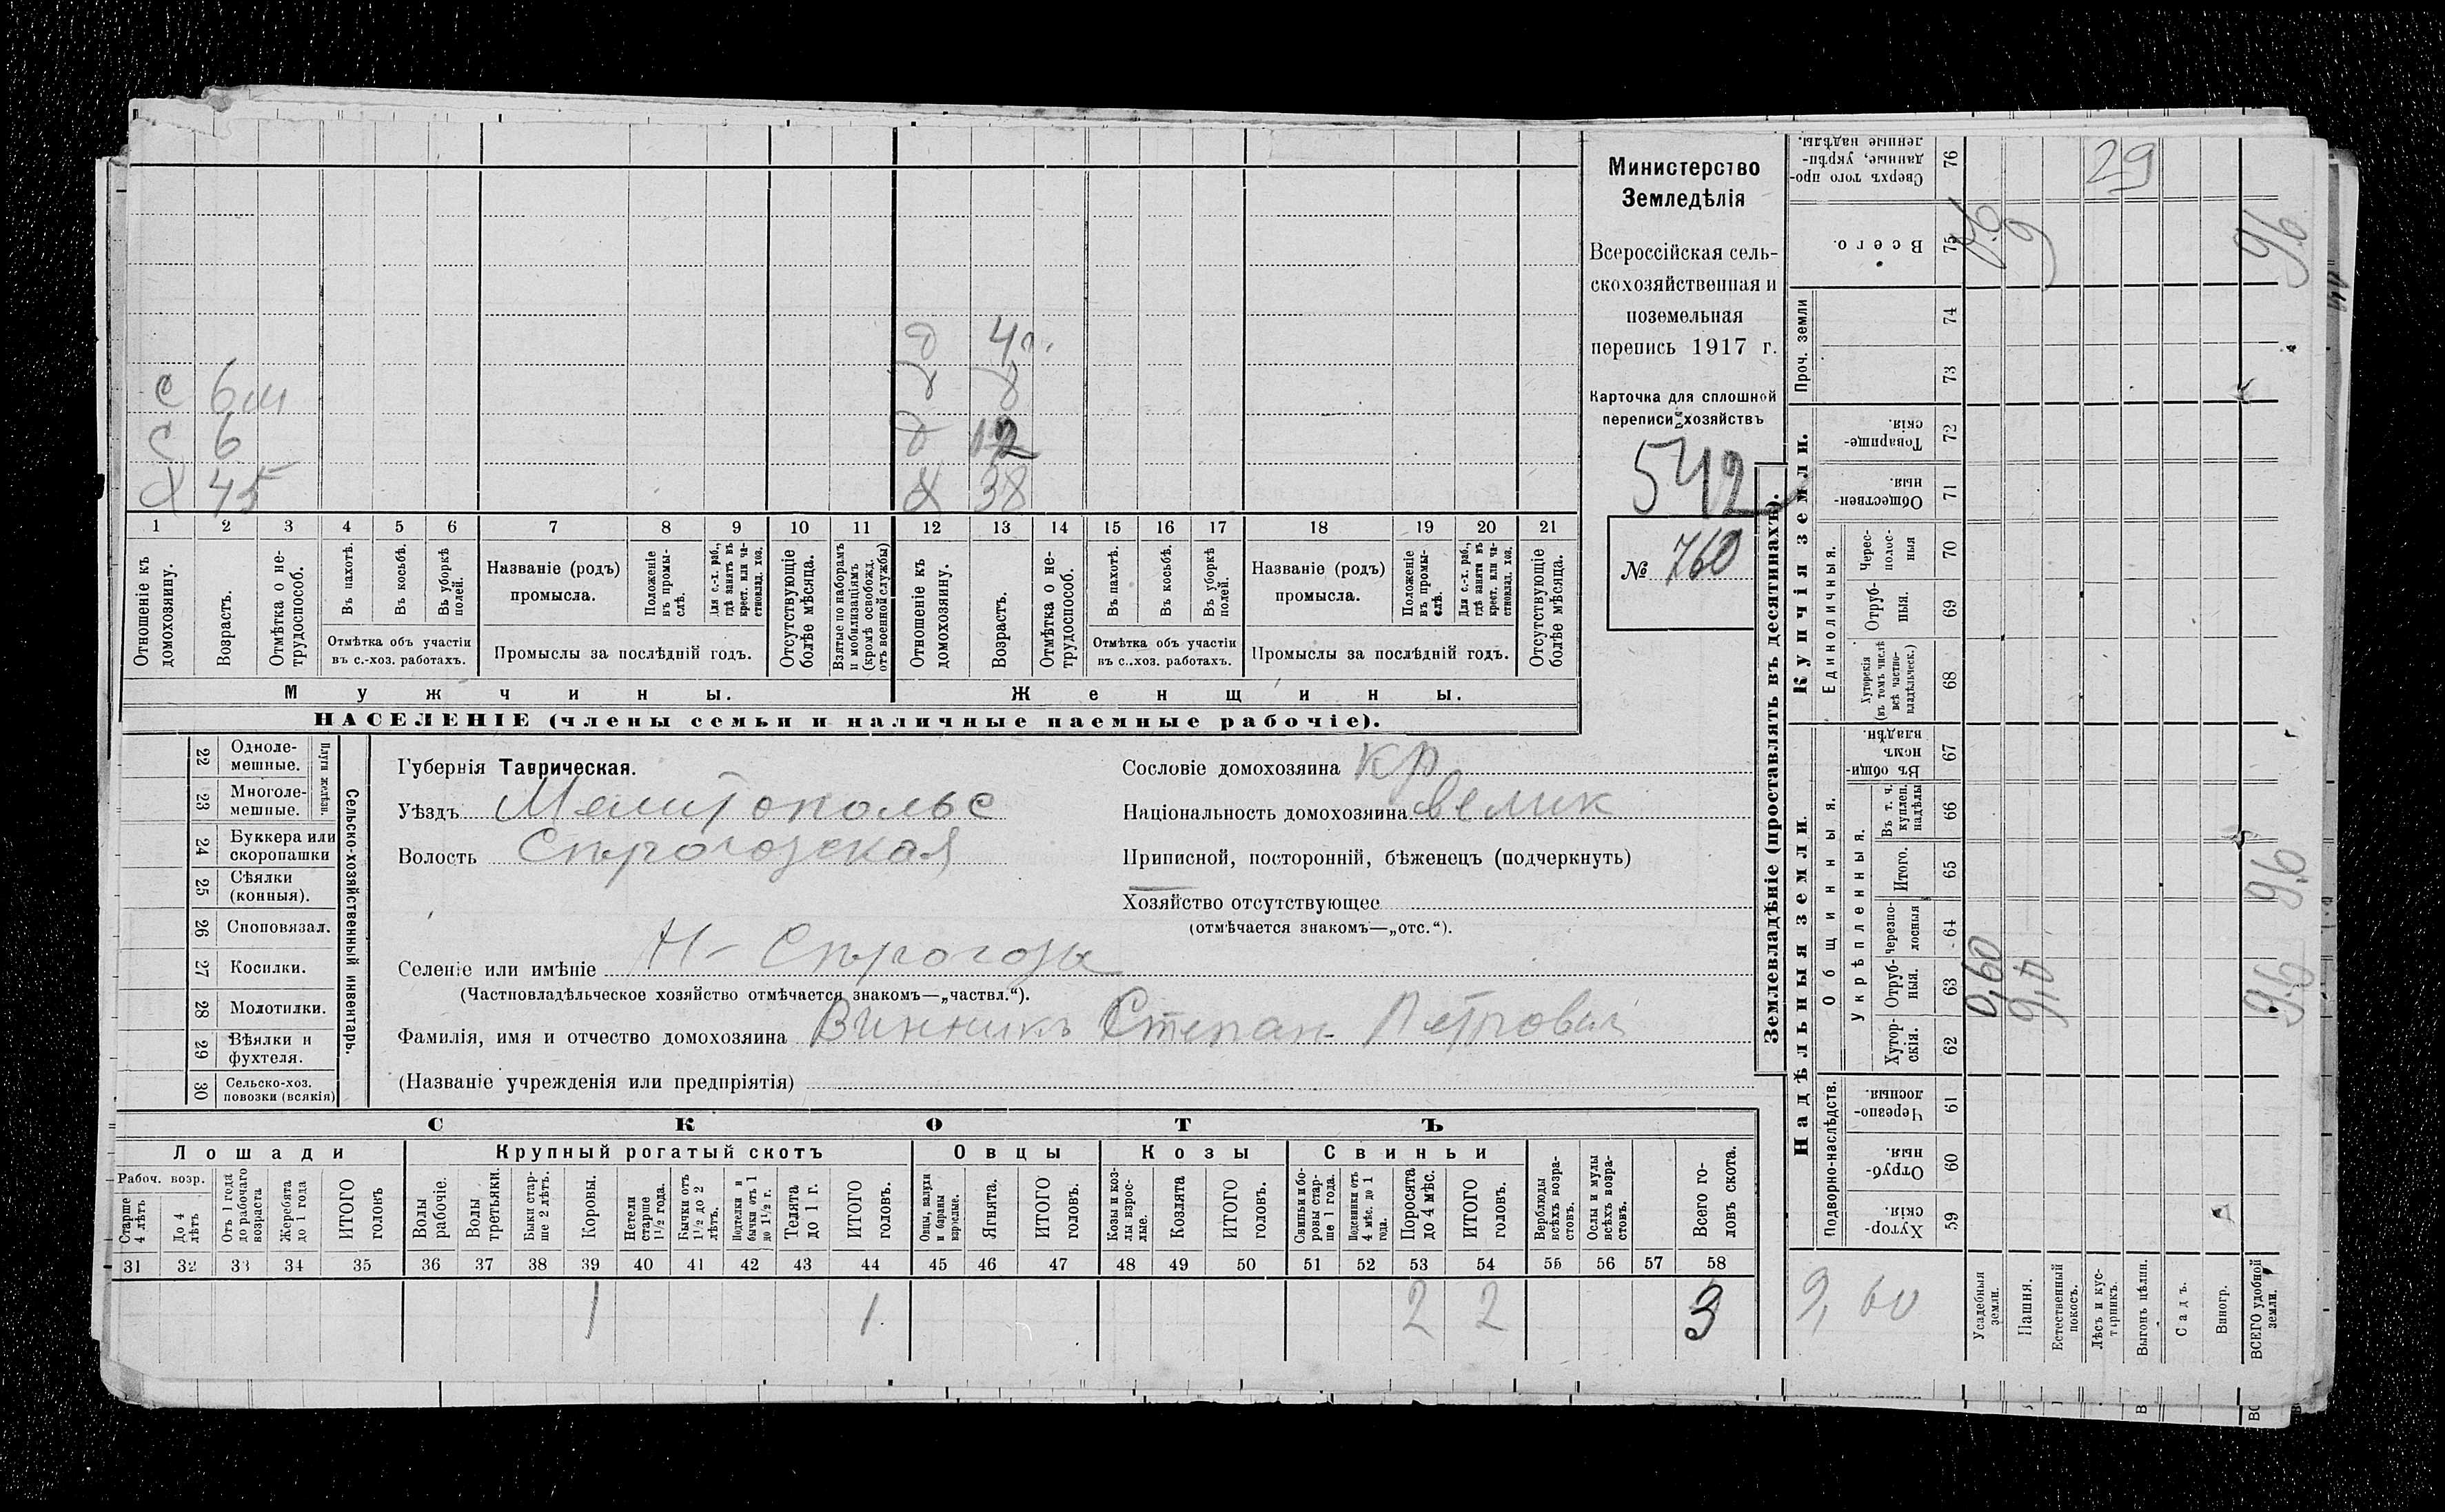 с 6 м
с 6
х 45
д 4
д 8
д 12
х 38
1 2 3 4 5 6 7 8 9 10 11 12 13 14 15 16 17 18 19 20 21
Отношеніе къ домохозяину.
Возрастъ.
Отмѣтка о нетрудоспособ.
Въ пахотѣ.
Въ косьбѣ.
Въ уборкѣ полей.
Отмѣтка объ участіи
въ с.-хоз. работахъ.
Названіе (родъ)
промысла.
Положеніе въ промыслѣ.
Для с.-х. раб., гдѣ занятъ въ крест. или частновлад. хоз.
Промыслы за послѣдній годъ.
Отсутствующіе болѣе мѣсяца.
Взятые по наборамъ и мобилизаціямъ (кромѣ освобожд. отъ военной службы)
Отношеніе къ домохозяину.
Возрастъ.
Отмѣтка о нетрудоспособ.
Въ пахотѣ.
Въ косьбѣ.
Въ уборкѣ полей.
Отмѣтка объ участіи
въ с..хоз. работахъ.
Названіе (родъ)
промысла.
Положеніе въ промыслѣ.
Для с.-х. раб., гдѣ занята въ крест. или частновлад. хоз.
Промыслы за послѣдній годъ.
Отсутствующіе болѣе мѣсяца.
Мужчины.
Женщины.
НАСЕЛЕНІЕ (члены семьи и наличные наемные рабочіе).
Министерство
Земледѣлія
Всероссійская сель-
скохозяйственная и
поземельная
перепись 1917 г.
Карточка для сплошной
переписи хозяйствъ
542
№ 760
Сельско-хозяйственный инвентарь.
Плуги желѣзн.
22 Одноле-
мешные.
23 Многоле-
мешные.
24 Буккера или
скоропашки
25 Сѣялки
(конныя).
26 Сноповязал.
27 Косилки.
28 Молотилки.
29 Вѣялки и
фухтеля.
30 Сельско-хоз.
повозки (всякія)
Губернія Таврическая.
Уѣздъ Мелитопольс
Волость Сѣрогозская
Селеніе или имѣніе Н- Сѣрогозы
(Частновладѣльческое хозяйство отмѣчается знакомъ—„частвл.“).
Фамилія, имя и отчество домохозяина Винникъ Степан Петрович
(Названіе учрежденія или предпріятія)
Сословіе домохозяина кр
Національность домохозяина велик
Приписной, посторонній, бѣженецъ (подчеркнуть)
Хозяйство отсутствующее
(отмѣчается знакомъ—„отс.“).
СКОТЪ
Лошади
Крупный рогатый скотъ
Овцы
Козы
Свиньи
Рабоч. возр.
Старше 4 лѣтъ
До 4 лѣтъ
Отъ 1 года до рабочаго возраста
Жеребята до 1 года
ИТОГО головъ
Волы рабочіе.
Волы третьяки.
Быки старше 2 лѣтъ.
Коровы.
Нетели старше 1½ года.
Бычки отъ 1½ до 2 лѣтъ.
Подтелки и бычки отъ 1 до 1½ г.
Телята до 1 г.
ИТОГО головъ.
Овцы, валухи и бараны взрослые.
Ягнята.
ИТОГО головъ.
Козы и козлы взрослые.
Козлята
ИТОГО головъ.
Свиньи и боровы старше 1 года.
Подсвинки отъ 4 мѣс. до 1 года.
Поросята до 4 мѣс.
ИТОГО головъ.
Верблюды всѣхъ возрастовъ.
Ослы и мулы всѣхъ возрастовъ.
Всего головъ скота.
31 32 33 34 35 36 37 38 39 40 41 42 43 44 45 46 47 48 49 50 51 52 53 54 55 56 57 58
1 1 2 2 3
Землевладѣніе (проставлять въ десятинахъ).
Надѣльныя земли.
Купчія земли.
Проч. земли
Подворно-наслѣдств.
Общинныя.
Укрѣпленныя.
Единоличныя.
Сверхъ того проданные, укрѣпленные надѣлы. 76
Всего. 75
74
73
Товарищескія. 72
Общественныя. 71
Чересполосныя 70
Отрубныя. 69
Хуторскія (въ томъ числѣ всѣ частновладѣльческ.) 68
Въ общиномъ владѣн. 67
Въ т. ч. куплен. надѣлы 66
Итого. 65
Черезполосныя 64
Отрубныя. 63
Хуторскія. 62
Черезполосныя 61
Отрубныя. 60
Хуторскія. 59
29
0,6
9
9,6
9,6
0,60
9,0
9,6
9,60
Усадебныя земли.
Пашня.
Естественный покосъ.
Лѣсъ и кустарникъ.
Выгонъ цѣлин.
Садъ.
Виногр.
ВСЕГО удобной земли.